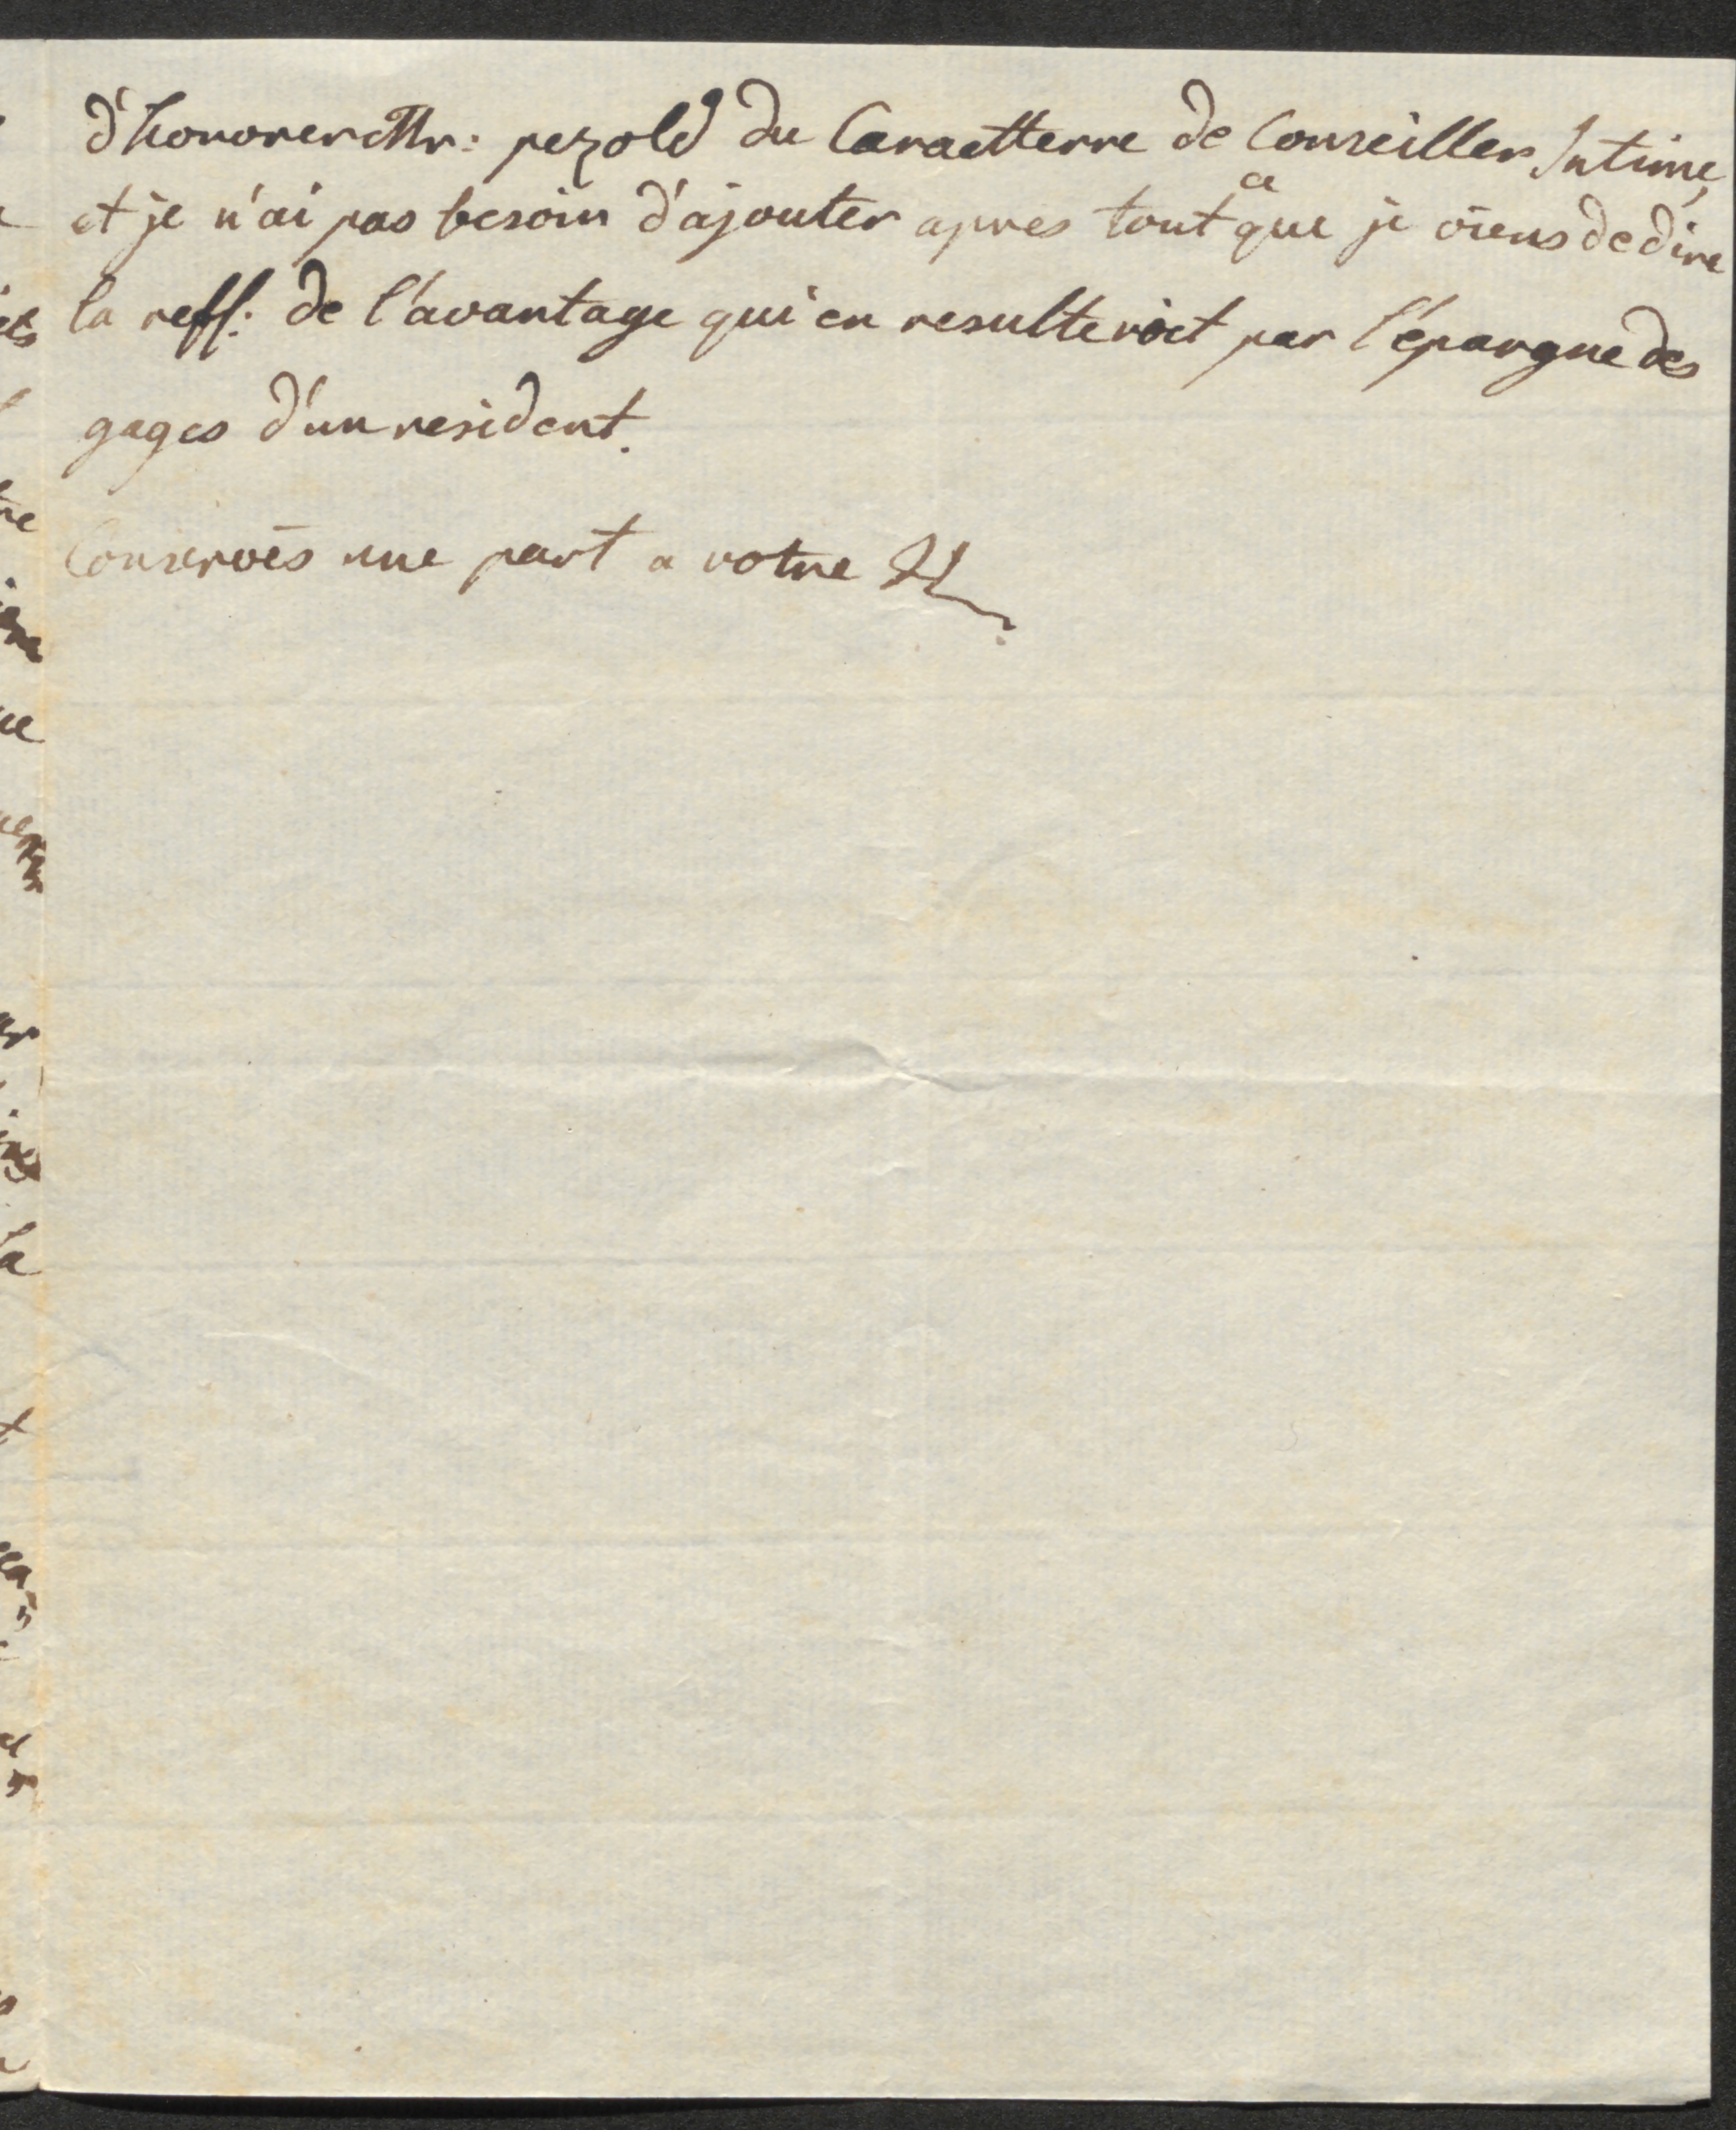 d'honorer Mr: pezold du Caractterre de Conseiller Intime,
et je n'ai pas besoin d'ajouter apres tout ce que je viens de dire
la reff: de l'avantage qui en resulteroit par l'épargne des
gages d'un resident.
Conservés une part a votre